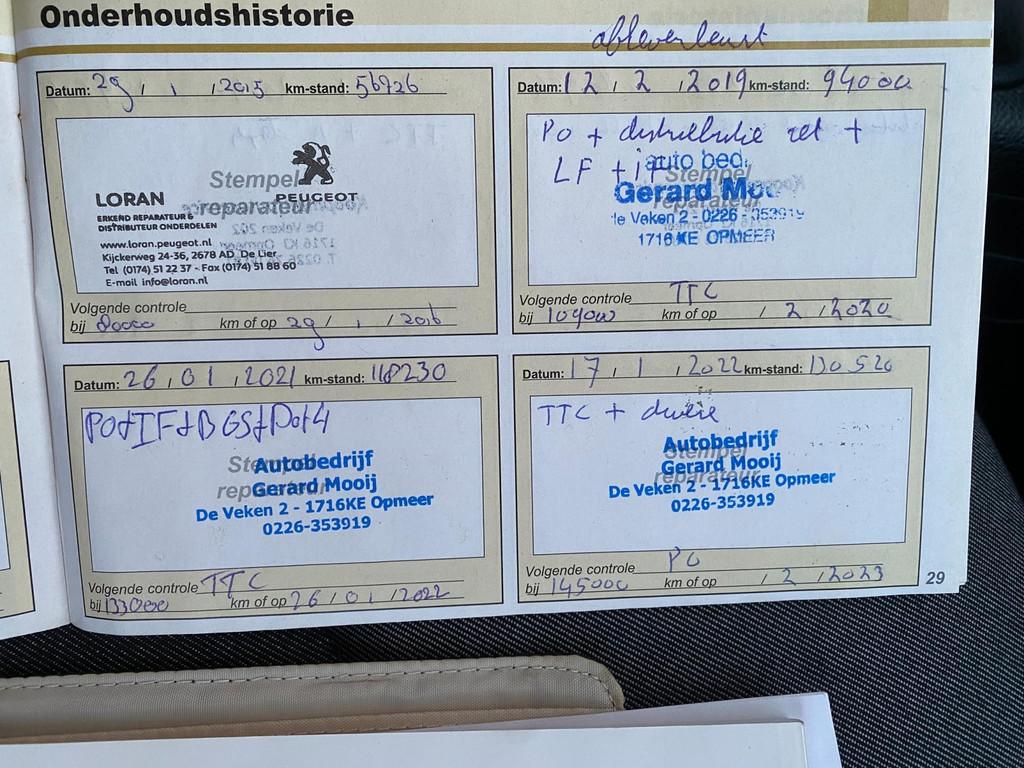 Onderhoudshistorie
afleverbeurt
Datum: 29 / 1 / 2015 km-stand: 56926
Stempel
reparateur
LORAN
PEUGEOT
ERKEND REPARATEUR &
DISTRIBUTEUR ONDERDELEN
www.loran.peugeot.nl
Kijckerweg 24-36, 2678 AD De Lier
Tel (0174) 51 22 37 - Fax (0174) 51 88 60
E-mail info@loran.nl
Volgende controle
bij 80000 km of op 29 / 1 / 2016
Datum: 12 / 2 / 2019 km-stand: 94000
PO + distributie set +
LF + IF
auto bed.
Stempel
Gerard Moo
reparateur
de Veken 2 - 0226 - 353919
1716 KE OPMEER
Volgende controle TTC
bij 109000 km of op / 2 / 2020
Datum: 26 / 01 / 2021 km-stand: 118230
PO+IF+BGS+Dot4
Stempel
reparateur
Autobedrijf
Gerard Mooij
De Veken 2 - 1716KE Opmeer
0226-353919
Volgende controle TTC
bij 133000 km of op 26 / 01 / 2022
Datum: 17 / 1 / 2022 km-stand: 130520
TTC +
Autobedrijf
Stempel
Gerard Mooij
reparateur
De Veken 2 - 1716KE Opmeer
0226-353919
Volgende controle PO
bij 145000 km of op / 2 / 2023
29